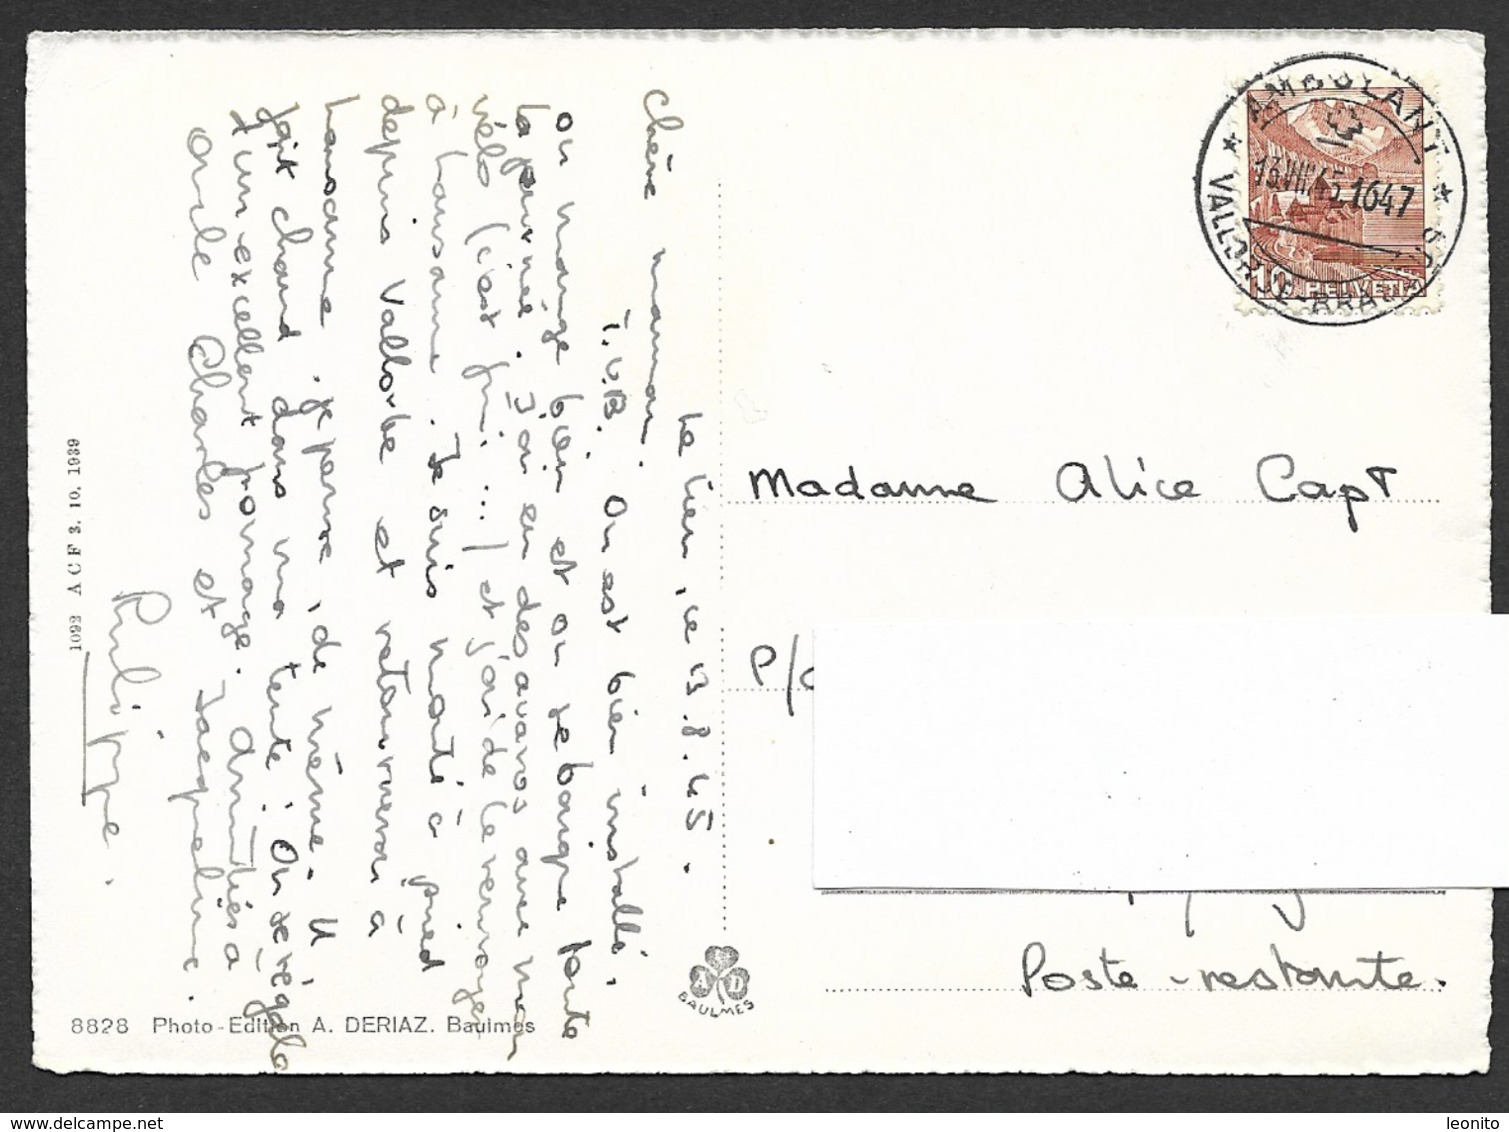 Le lieu, le 13.8.45.
Chère maman.
T.V.B. On est bien installé,
on mange bien et on se barque toute
la journée. J'ai eu des avaros avec mon
vélo (c'est fini...) et j'ai dû le renvoyer
à Lausanne. Je suis monté à pied
depuis Vallorbe et retournerai à
Lausanne, je pense, de même. Il
fait chaud dans ma tente! On se régale
d'un excellent fromage. Amitiés à
oncle Charles et Jacqueline.
Philippe.
Madame Alice Capt
P/a
Poste-restante.
AMBULANT
13.VIII.45.1647
VALLORBE-BRA
10 HELVETIA
1092 ACF 3. 10. 1939
8828 Photo-Edition A. DERIAZ. Baulmes
A D
BAULMES
leonito